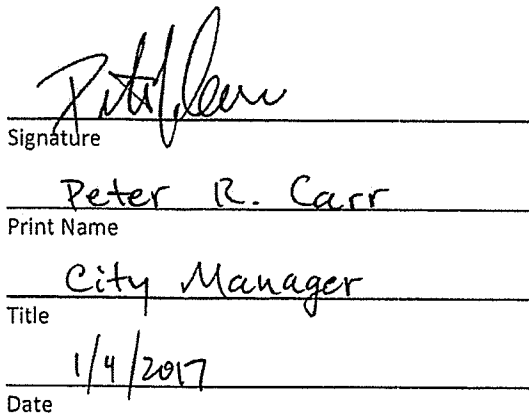 Signature
Peter R. Carr
Print Name
City Manager
Title
1/4/2017
Date